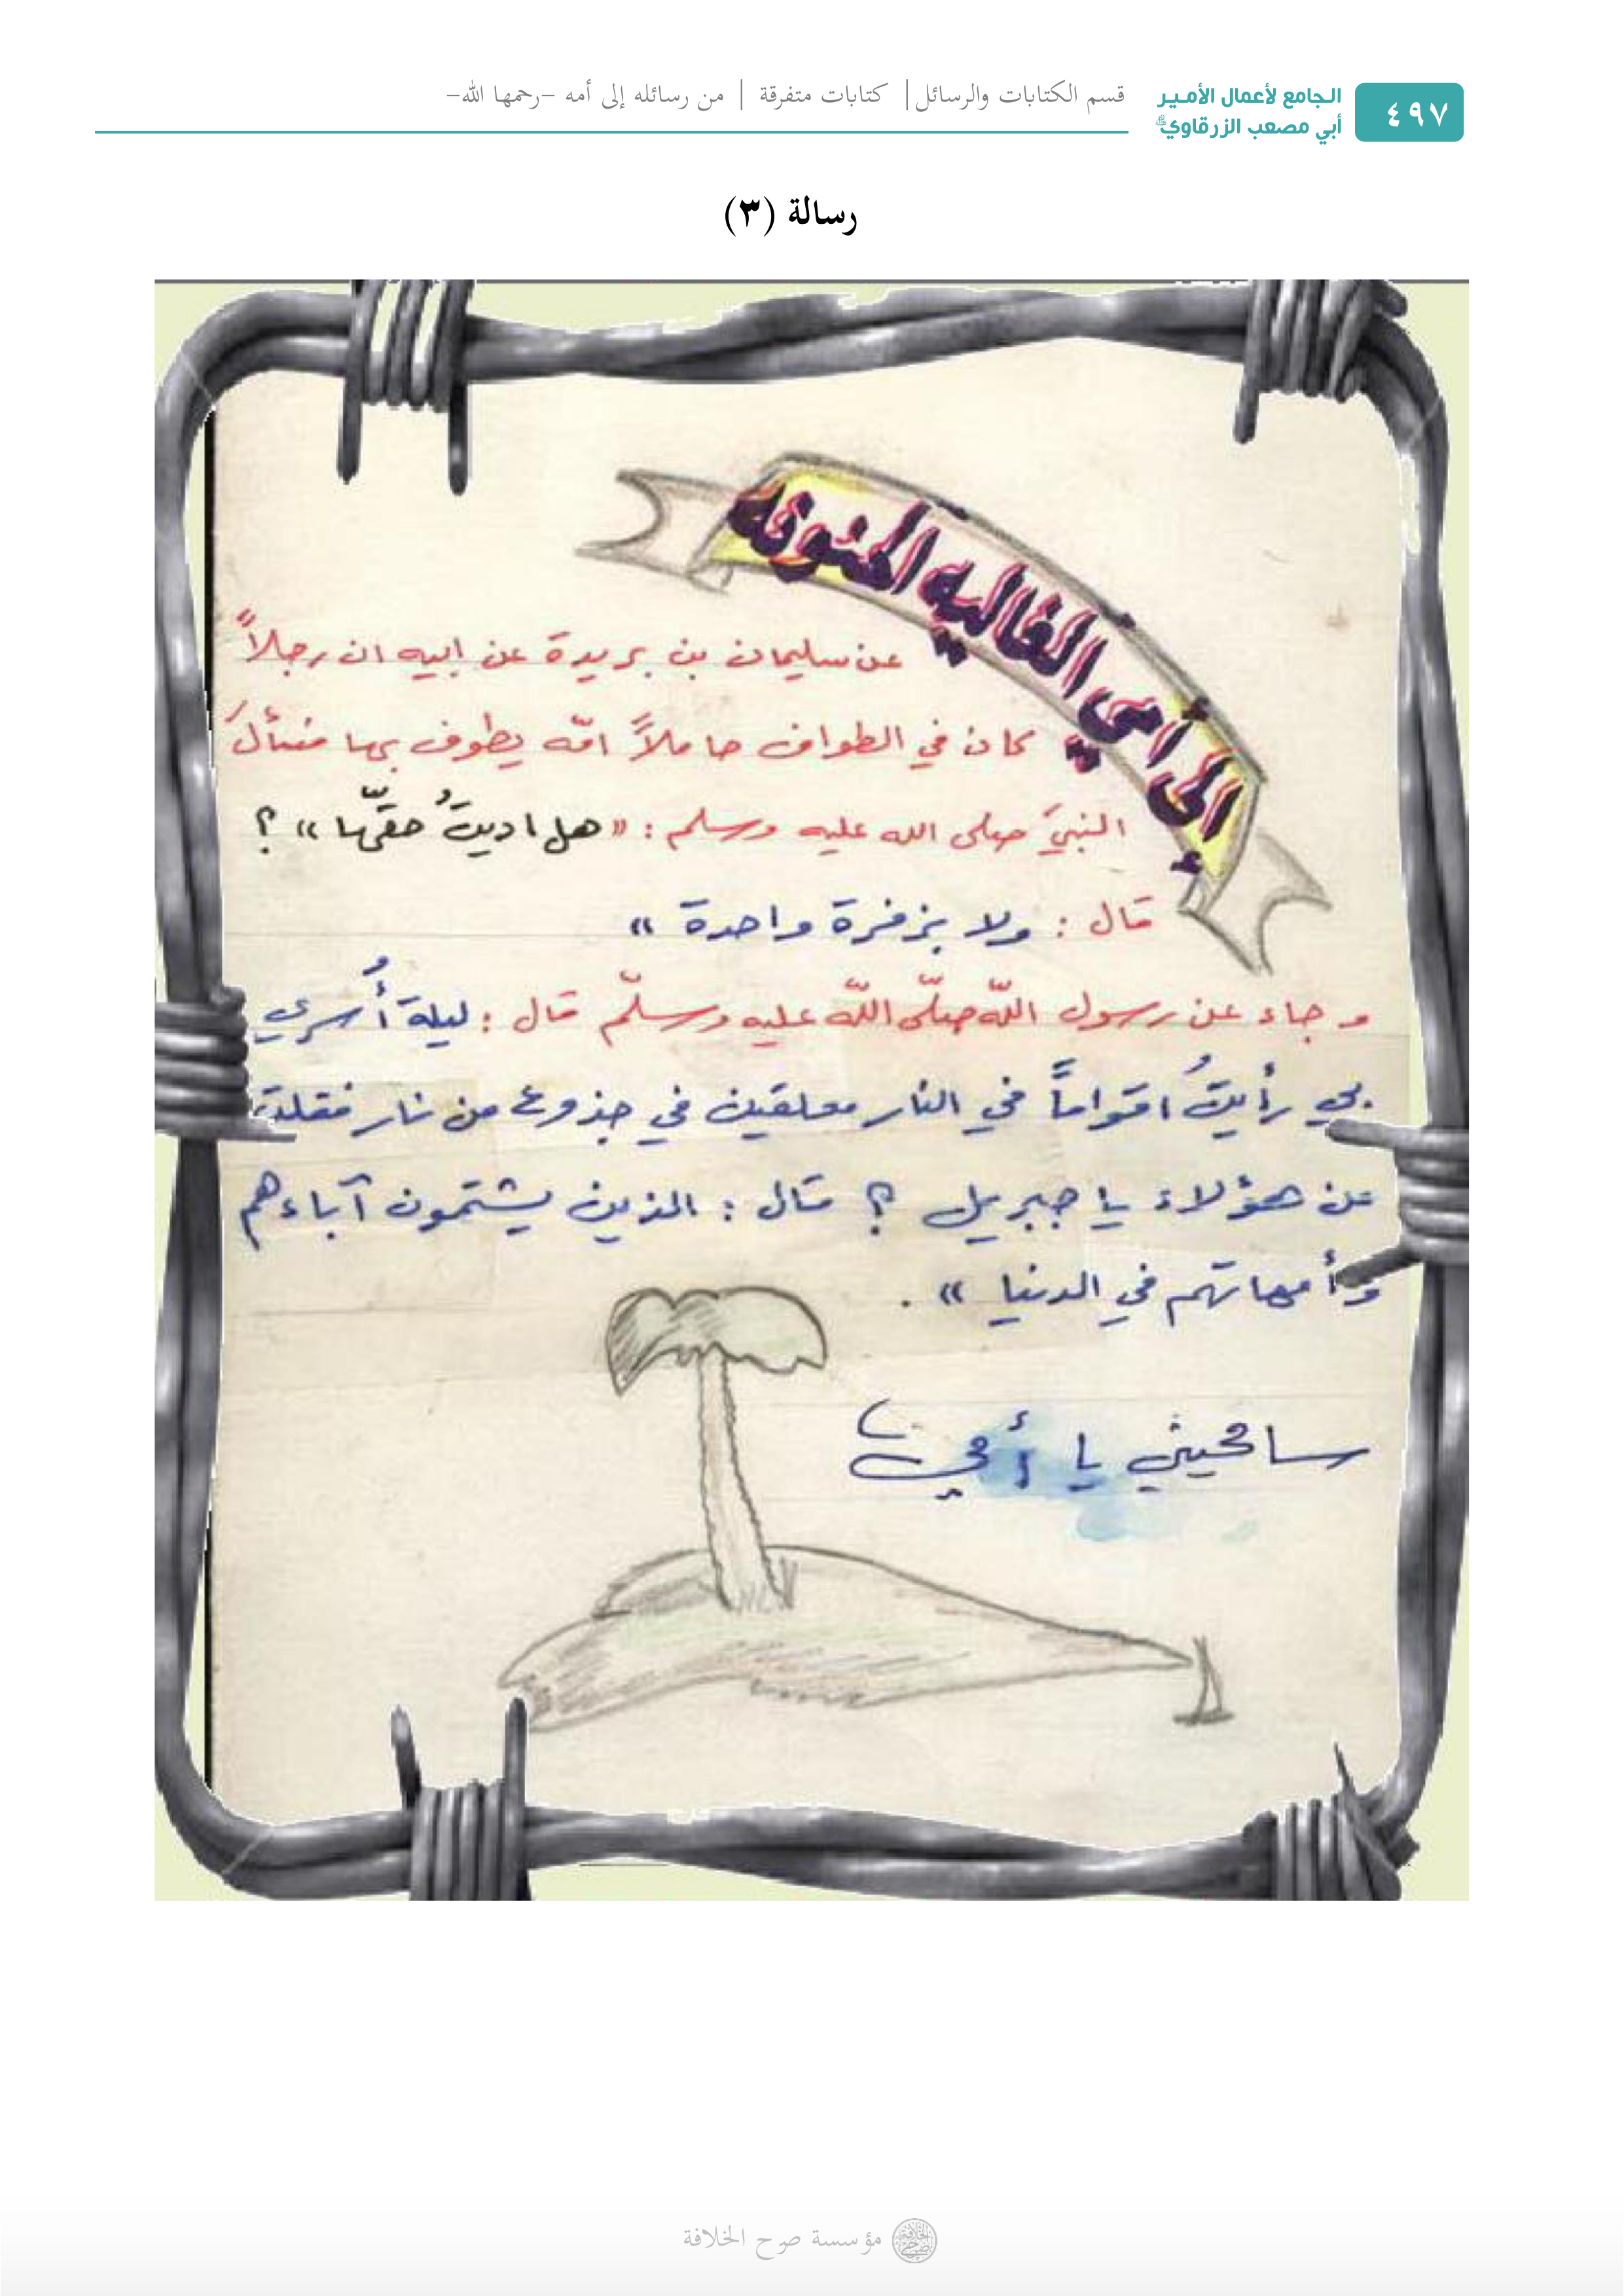 ٤٩٧
الجامع لأعمال الأمير
أبي مصعب الزرقاوي
قسم الكتابات والرسائل | كتابات متفرقة | من رسائله إلى أمه -رحمها الله-
رسالة (٣)
إلى امي الغاليه الحنونه
عن سليمان بن بريدة عن ابيه ان رجلاً
كان في الطواف حاملاً امّه يطوف بها فسألَ
النبيَ صلى الله عليه وسلم : «هل اديتُ حقّها» ؟
قال : ولا بزفرة واحدة »
و جاء عن رسول اللّه صلّى اللّه عليه وسلّم قال : ليلة أُسري
بي رأيتُ اقواماً في النار معلقين في جذوع من نار فقلت
عن هؤلاء يا جبريل ؟ قال : الذين يشتمون آباءهم
وأمهاتهم في الدنيا » .
سامحيني يا أمي
مؤسسة صرح الخلافة